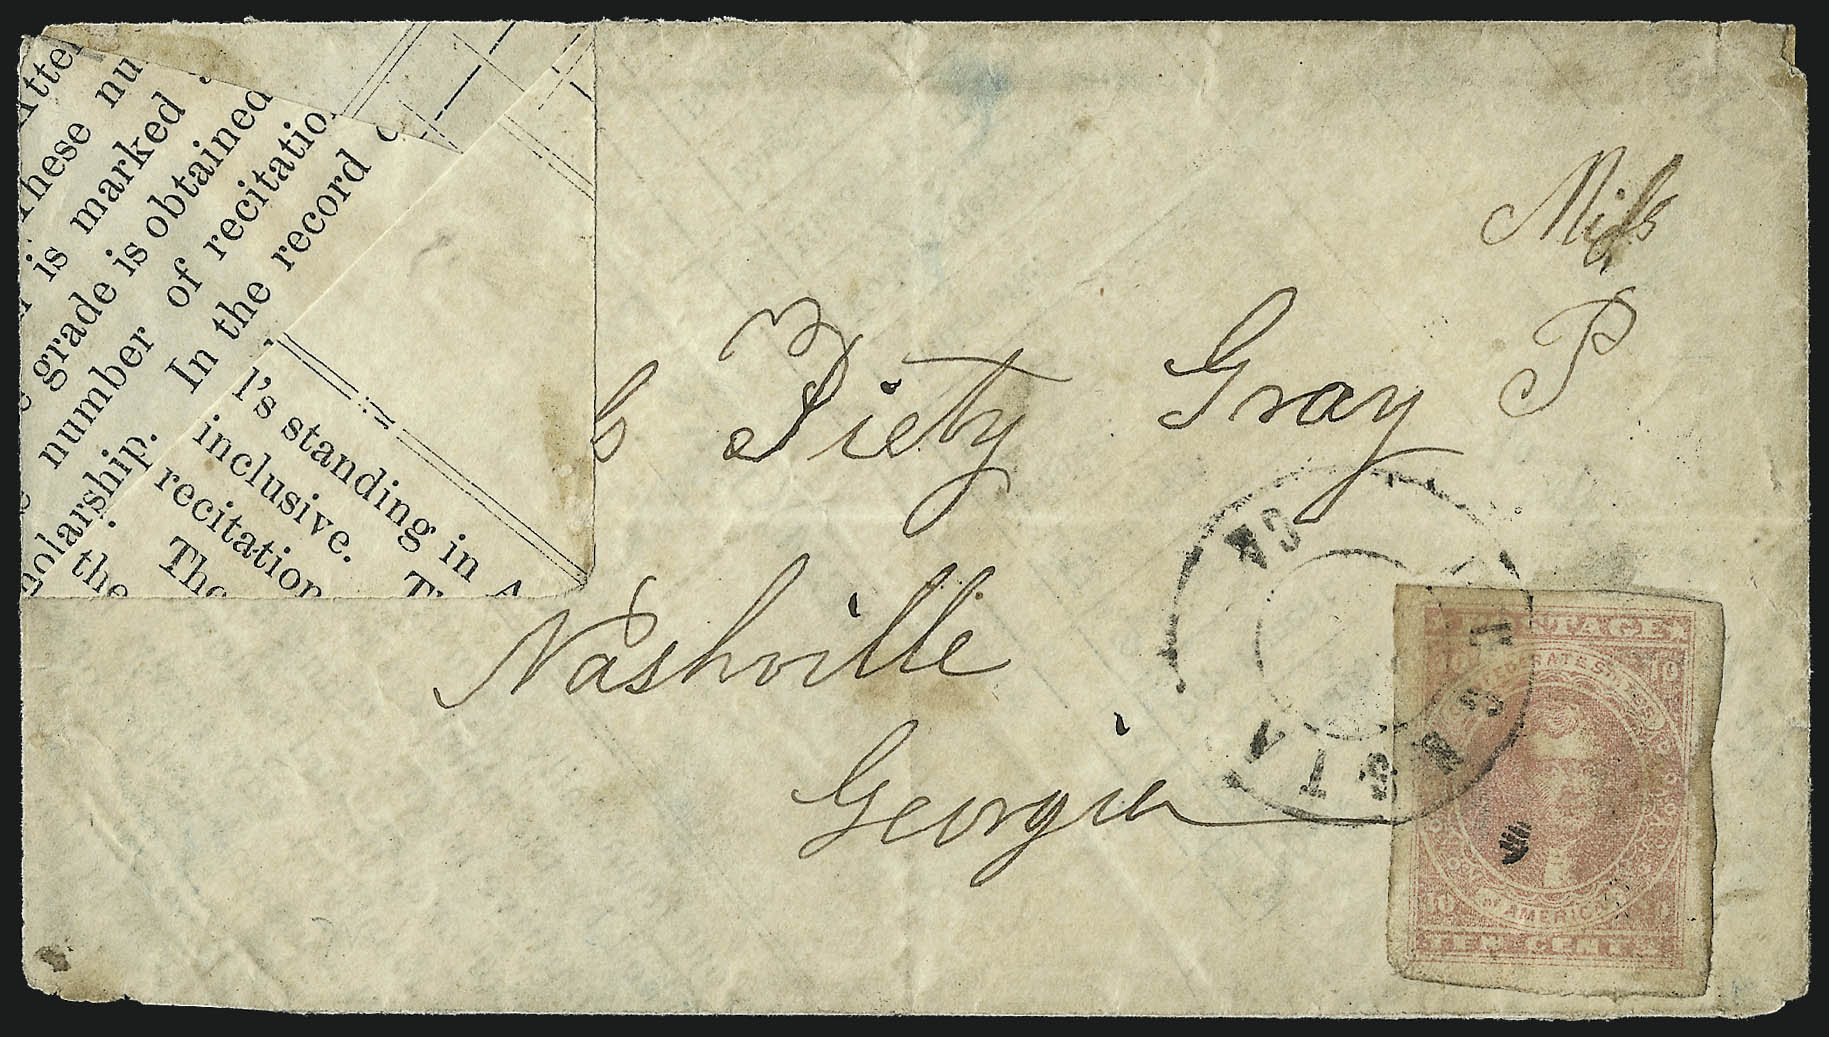 Miss
s Piety Gray P
Nashville
Georgia
AUGUSTA
GA
POSTAGE
10 10
CONFEDERATE STATES
OF AMERICA
10
TEN CENTS
These nu
is marked
grade is obtained
number of recitatio
In the record
the
l's standing in A
inclusive. T
recitation
The